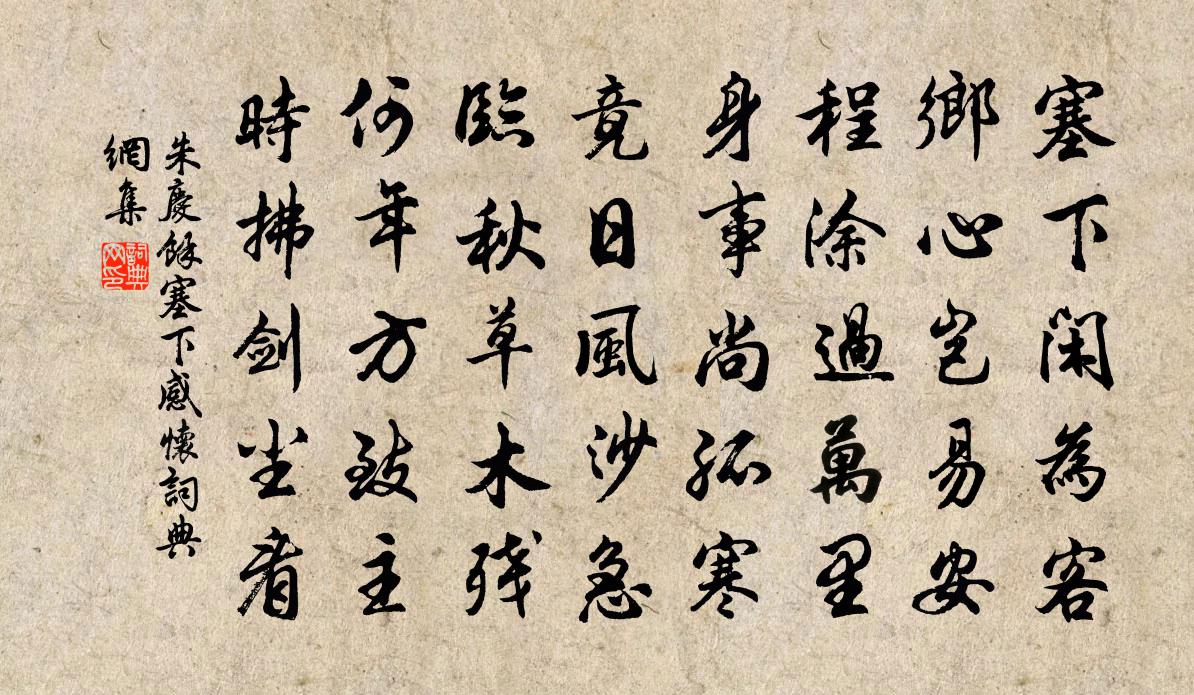 塞下閑為客
鄉心豈易安
程涂過萬里
身事尚孤寒
竟日風沙急
臨秋草木残
何年方致主
時拂剑尘看
朱慶餘塞下感懷詞典
網集
詞典网印